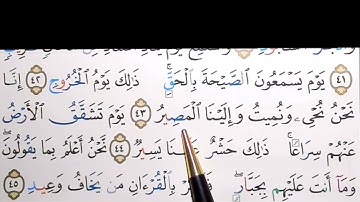 ٤١ يَوْمَ يَسْمَعُونَ الصَّيْحَةَ بِالْحَقِّ ۚ ذَٰلِكَ يَوْمُ الْخُرُوجِ ٤٢ إِنَّا
نَحْنُ نُحْيِۦ وَنُمِيتُ وَإِلَيْنَا الْمَصِيرُ ٤٣ يَوْمَ تَشَقَّقُ الْأَرْضُ
عَنْهُمْ سِرَاعًا ۚ ذَٰلِكَ حَشْرٌ يَسِيرٌ ٤٤ نَّحْنُ أَعْلَمُ بِمَا يَقُولُونَ ۖ
وَمَا أَنتَ عَلَيْهِم بِجَبَّارٍ ۖ بِالْقُرْءَانِ مَن يَخَافُ وَعِيدِ ٤٥